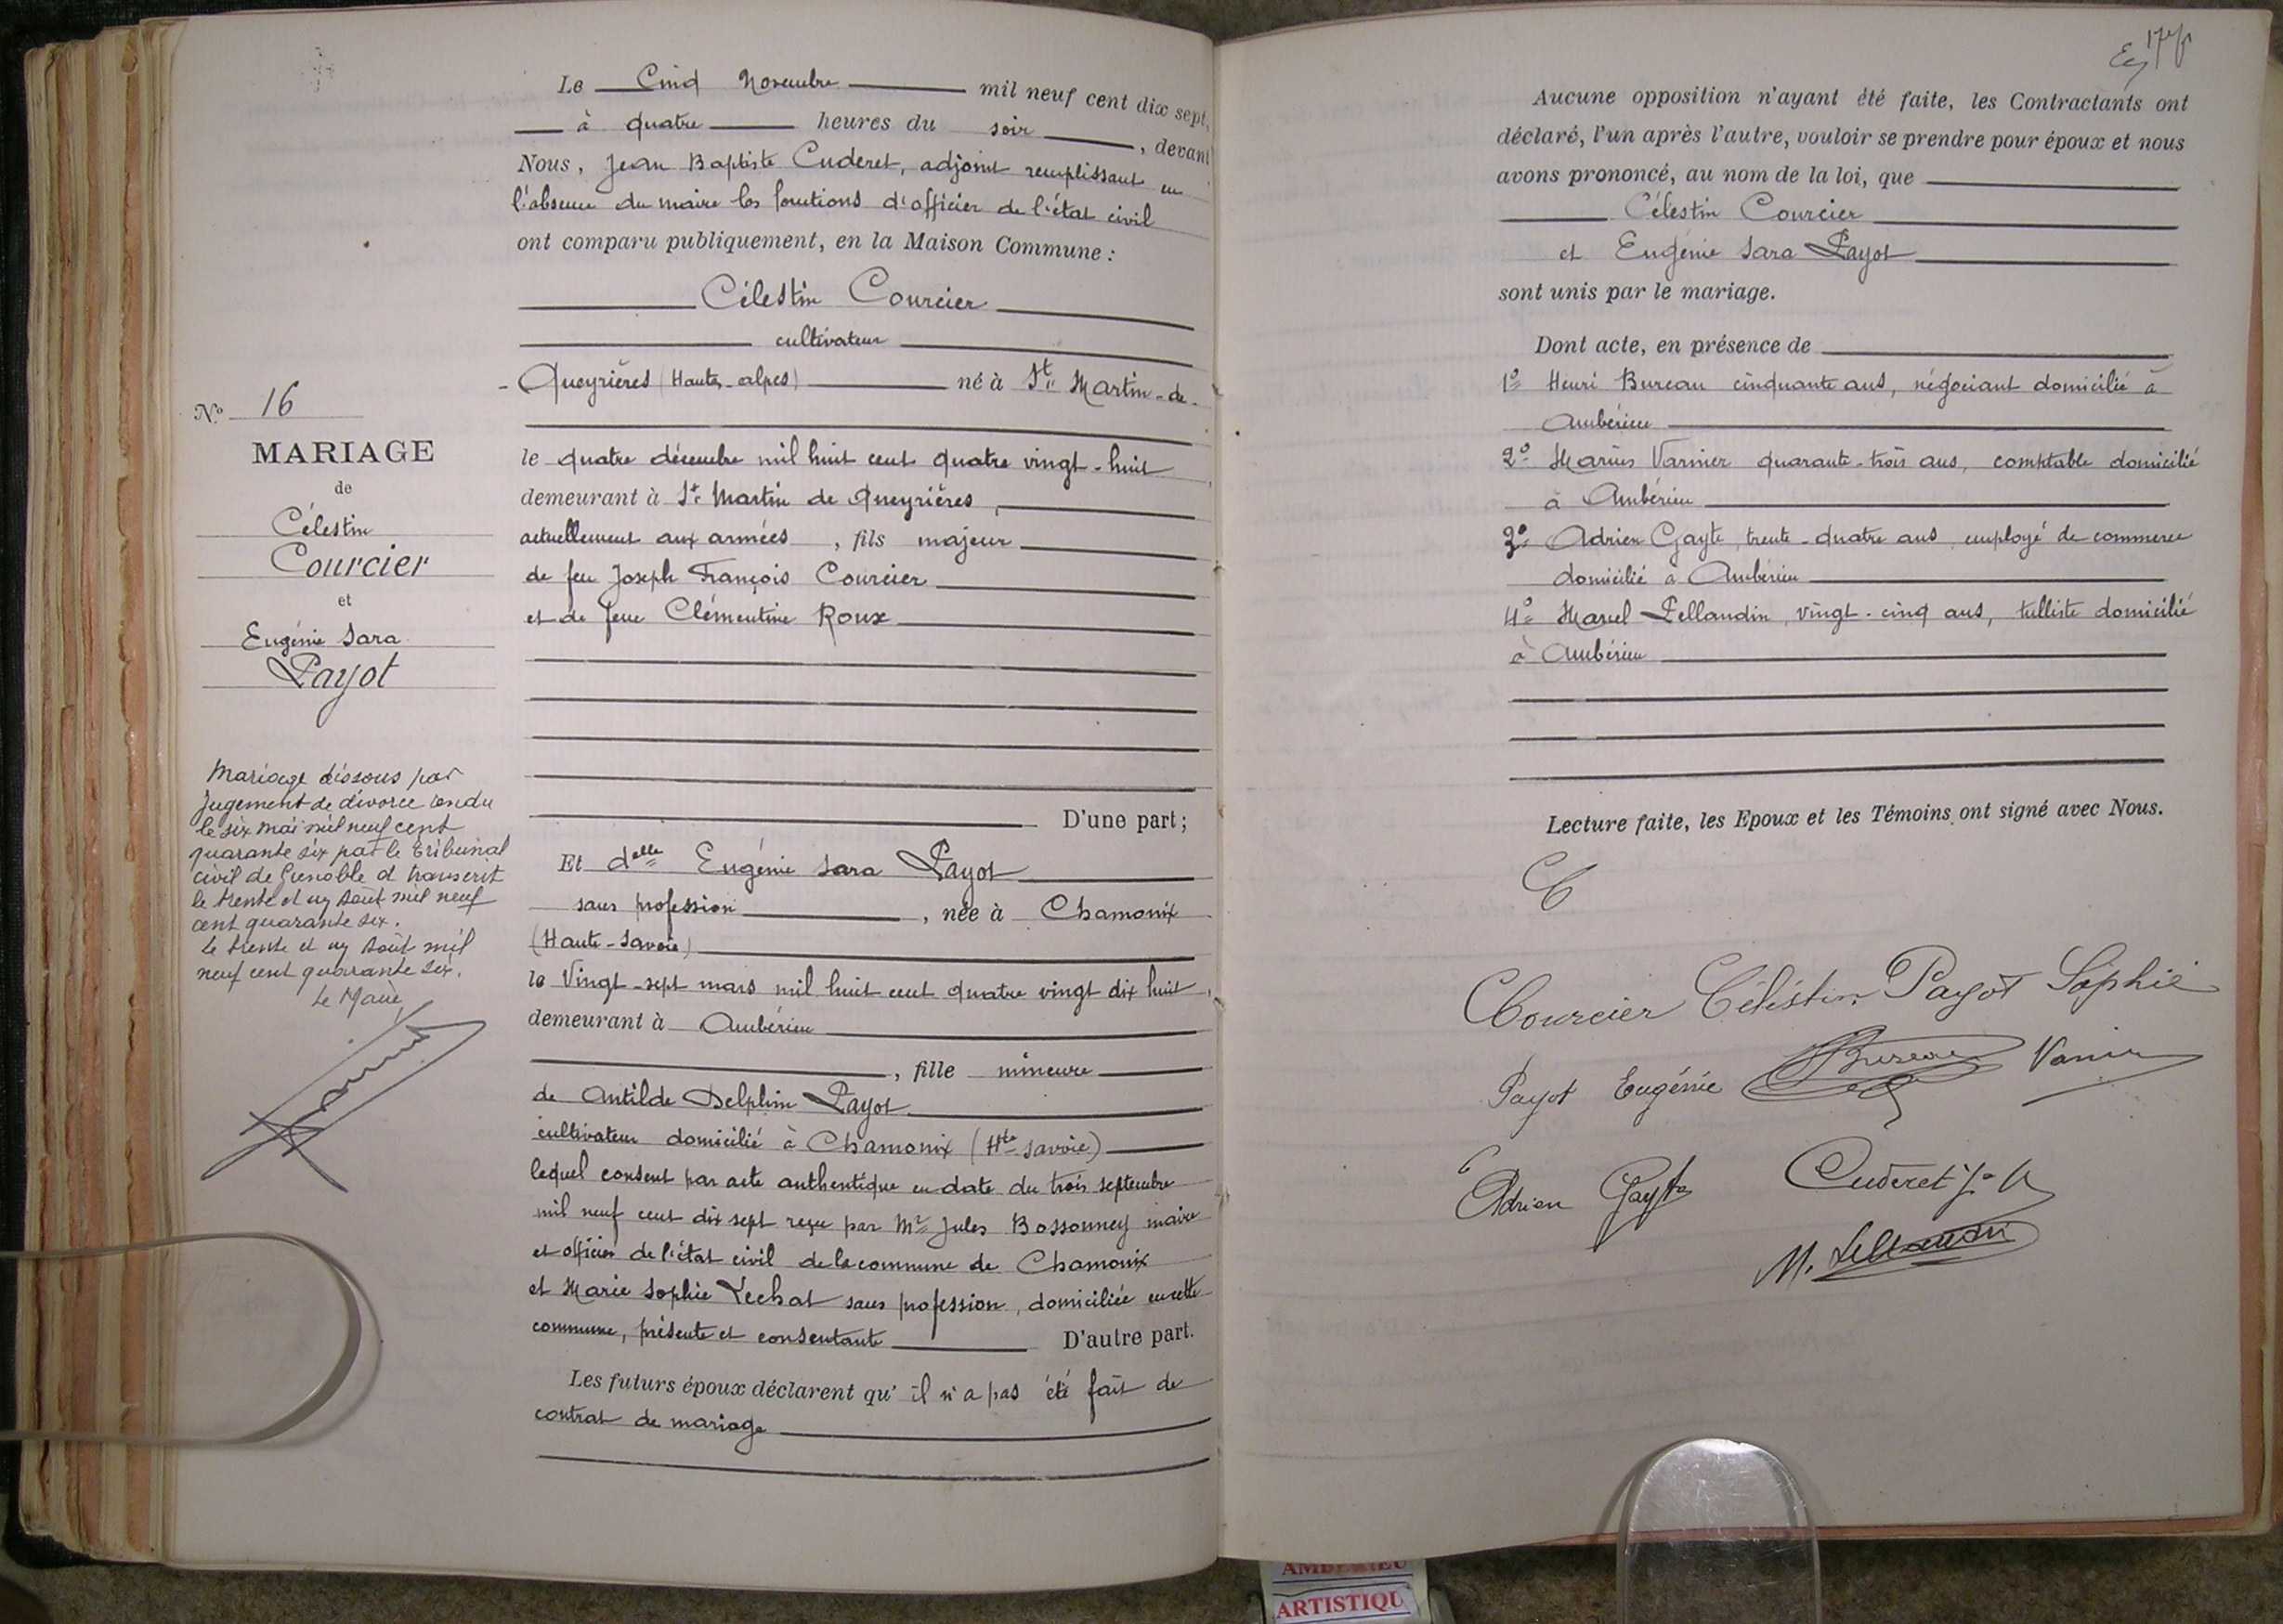 Le Cinq Novembre mil neuf cent dix sept,
à quatre heures du soir, devant
Nous, Jean Baptiste Cuderet, adjoint remplissant en
l'absence du maire les fonctions d'officier de l'état civil
ont comparu publiquement, en la Maison Commune :
Célestin Courcier
cultivateur
- Queyrières (Hautes-alpes) né à St Martin-de-
le quatre décembre mil huit cent quatre vingt-huit
demeurant à St Martin de Queyrières,
actuellement aux armées, fils majeur
de feu Joseph François Courcier
et de feue Clémentine Roux
D'une part;
Et delle Eugénie Sara Payot
sans profession, née à Chamonix
(Haute-Savoie)
le Vingt-sept mars mil huit cent quatre vingt dix huit,
demeurant à Ambérieu
, fille mineure
de Antilde Delphin Payot
cultivateur domicilié à Chamonix (Hte Savoie)
lequel consent par acte authentique en date du trois septembre
mil neuf cent dix sept reçu par Mr Jules Bossonney maire
et officier de l'état civil de la commune de Chamonix
et Marie Sophie Lechat sans profession, domiciliée en cette
commune, présente et consentante D'autre part.
Les futurs époux déclarent qu'il n'a pas été fait de
contrat de mariage
No 16
MARIAGE
de
Célestin
Courcier
et
Eugénie Sara
Payot
Mariage dissous par
Jugement de divorce rendu
le six mai mil neuf cent
quarante six par le tribunal
civil de Grenoble et transcrit
le trente et un août mil neuf
cent quarante six.
Le trente et un août mil
neuf cent quarante six.
Le Maire
Aucune opposition n'ayant été faite, les Contractants ont
déclaré, l'un après l'autre, vouloir se prendre pour époux et nous
avons prononcé, au nom de la loi, que
Célestin Courcier
et Eugénie Sara Payot
sont unis par le mariage.
Dont acte, en présence de
1o Henri Bureau cinquante ans, négociant domicilié à
Ambérieu
2o Marius Varnier quarante-trois ans, comptable domicilié
à Ambérieu
3o Adrien Gayte, trente-quatre ans, employé de commerce
domicilié à Ambérieu
4o Marcel Pellaudin, vingt-cinq ans, tulliste domicilié
à Ambérieu
Lecture faite, les Epoux et les Témoins ont signé avec Nous.
C
Courcier Célestin Payot Sophie
Payot Eugénie Bureau
Adrien Gayte Cuderet
AMBERIEU
ARTISTIQU